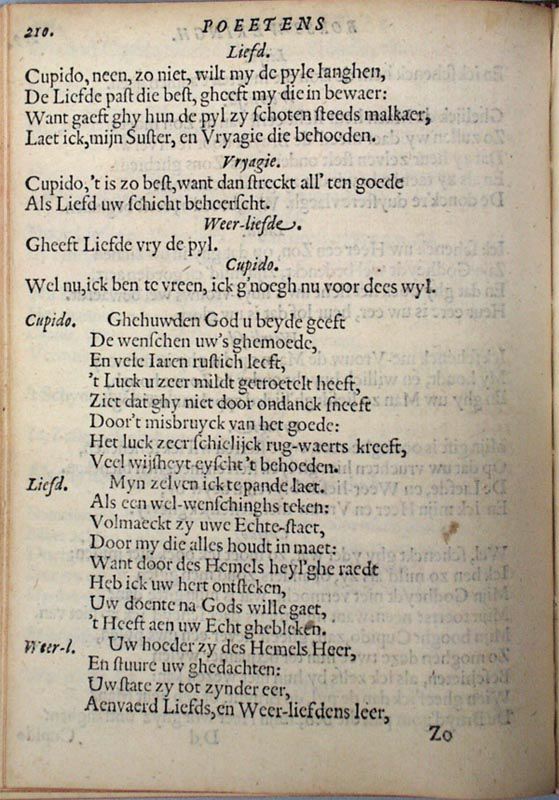 210. POEETENS
Liefd.
Cupido, neen, zo niet, wilt my de pyle langhen,
De Liefde past die best, gheeft my die in bewaer:
Want gaeft ghy hun de pyl zy schoten steeds malkaer,
Laet ick, mijn Suster, en Vryagie die behoeden.
Vryagie.
Cupido, 't is zo best, want dan streckt all' ten goede
Als Liefd uw schicht beheerscht.
Weer-liefde.
Gheeft Liefde vry de pyl.
Cupido.
Wel nu, ick ben te vreen, ick g'noegh nu voor dees wyl.
Cupido. Ghehuwden God u beyde geeft
De wenschen uw's ghemoede,
En vele Iaren rustich leeft,
't Luck u zeer mildt getroetelt heeft,
Ziet dat ghy niet door ondanck sneeft
Door't misbruyck van het goede:
Het luck zeer schielijck rug-waerts kreeft,
Veel wijsheyt eyscht't behoeden.
Liefd. Myn zelven ick te pande laet.
Als een wel-wenschinghs teken:
Volmaeckt zy uwe Echte-staet,
Door my die alles houdt in maet:
Want door des Hemels heyl'ghe raedt
Heb ick uw hert ontsteken,
Uw doente na Gods wille gaet,
't Heeft aen uw Echt ghebleken.
Weer-l. Uw hoeder zy des Hemels Heer,
En stuure uw ghedachten:
Uw state zy tot zynder eer,
Aenvaerd Liefds, en Weer-liefdens leer,
Zo